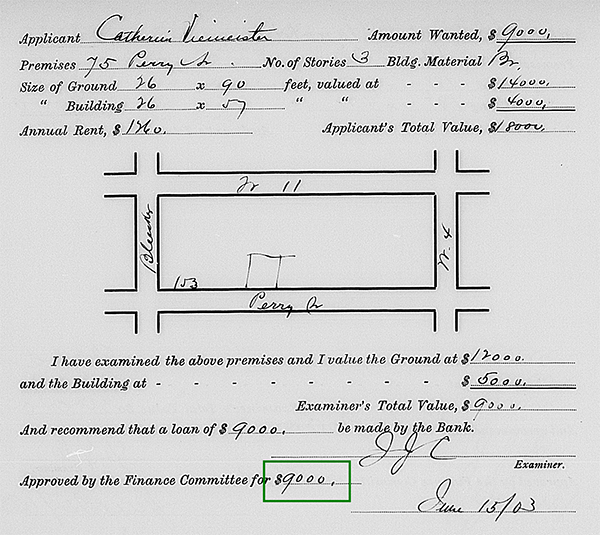 Applicant Catherine Viemeister Amount Wanted, $9000.
Premises 75 Perry St. No. of Stories 3 Bldg. Material Br
Size of Ground 26 x 90 feet, valued at - - - $14000.
" Building 26 x 57 " " - - - $4000.
Annual Rent, $1260. Applicant's Total Value, $18000.
W 11
Bleecker
W. 4
153
Perry St
I have examined the above premises and I value the Ground at $12000.
and the Building at - - - - - - - - - $5000.
Examiner's Total Value, $9000.
And recommend that a loan of $9000. be made by the Bank.
JJC
Examiner.
Approved by the Finance Committee for $9000.
June 15/03